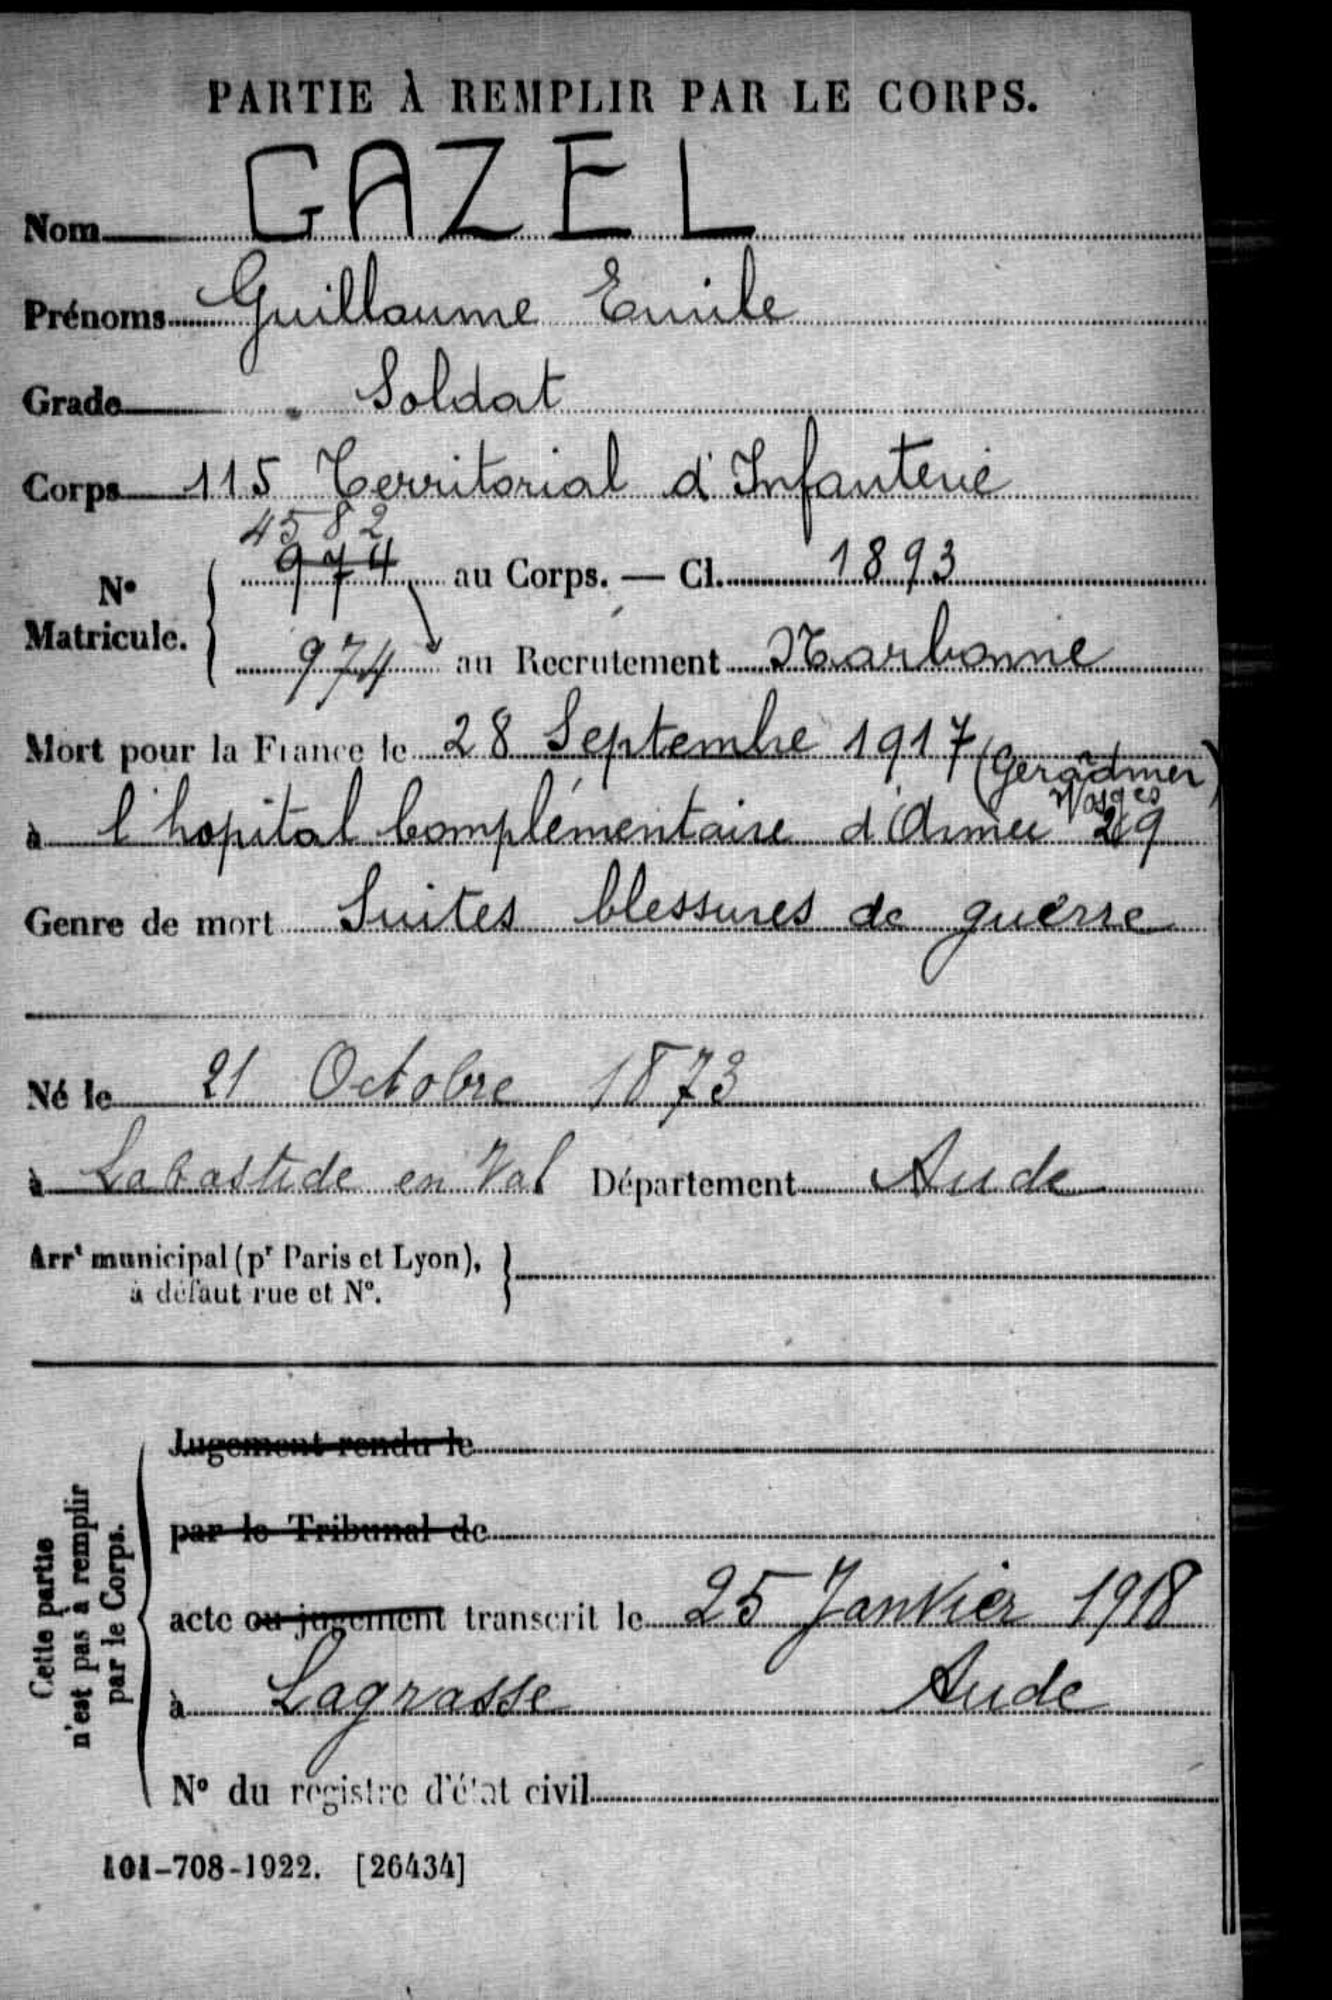 PARTIE À REMPLIR PAR LE CORPS.
Nom GAZEL
Prénoms Guillaume Emile
Grade Soldat
Corps 115 Territorial d'Infanterie
4582
974 au Corps. — Cl. 1893
N° Matricule.
974 au Recrutement Narbonne
Mort pour la France le 28 Septembre 1917 (Gerardmer
Vosges)
à l'hopital Complémentaire d'Armée 219
Genre de mort Suites blessures de guerre
Né le 21 Octobre 1873
à Labastide en Val Département Aude
Arrt municipal (pr Paris et Lyon),
à défaut rue et N°.
Cette partie
n'est pas à remplir
par le Corps.
Jugement rendu le
par le Tribunal de
acte ou jugement transcrit le 25 Janvier 1918
à Lagrasse Aude
N° du registre d'état civil
101-708-1922. [26434]